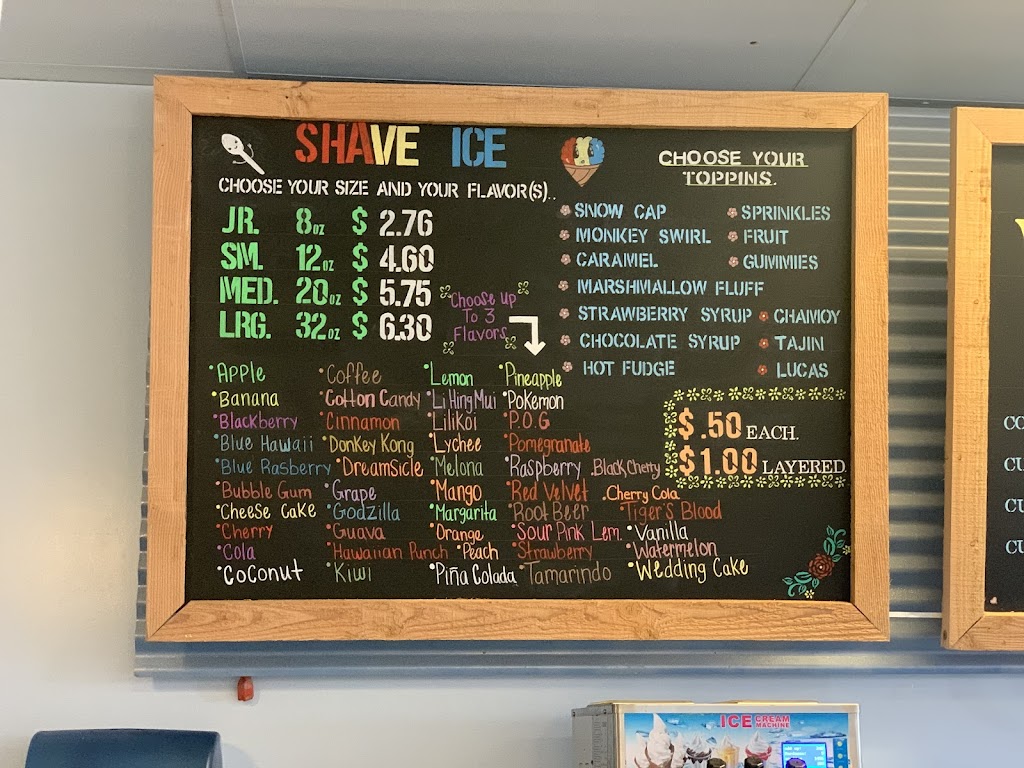 SHAVE ICE
CHOOSE YOUR SIZE AND YOUR FLAVOR(S)..
JR. 8oz $ 2.76
SM. 12oz $ 4.60
MED. 20oz $ 5.75
LRG. 32oz $ 6.30
Choose up
To 3
Flavors
CHOOSE YOUR
TOPPINS.
SNOW CAP
SPRINKLES
MONKEY SWIRL
FRUIT
CARAMEL
GUMMIES
MARSHMALLOW FLUFF
STRAWBERRY SYRUP
CHAMOY
CHOCOLATE SYRUP
TAJIN
HOT FUDGE
LUCAS
$.50 EACH.
$1.00 LAYERED.
Apple
Banana
Blackberry
Blue Hawaii
Blue Rasberry
Bubble Gum
Cheese Cake
Cherry
Cola
Coconut
Coffee
Cotton Candy
Cinnamon
Donkey Kong
Dreamsicle
Grape
Godzilla
Guava
Hawaiian Punch
Kiwi
Lemon
Li Hing Mui
Lilikoi
Lychee
Melona
Mango
Margarita
Orange
Peach
Piña Colada
Pineapple
Pokemon
P.O.G
Pomegranate
Raspberry
Red Velvet
Root Beer
Sour Pink Lem.
Strawberry
Tamarindo
Black Cherry
Cherry Cola
Tiger's Blood
Vanilla
Watermelon
Wedding Cake
CU
CU
CU
ICE CREAM
MACHINE